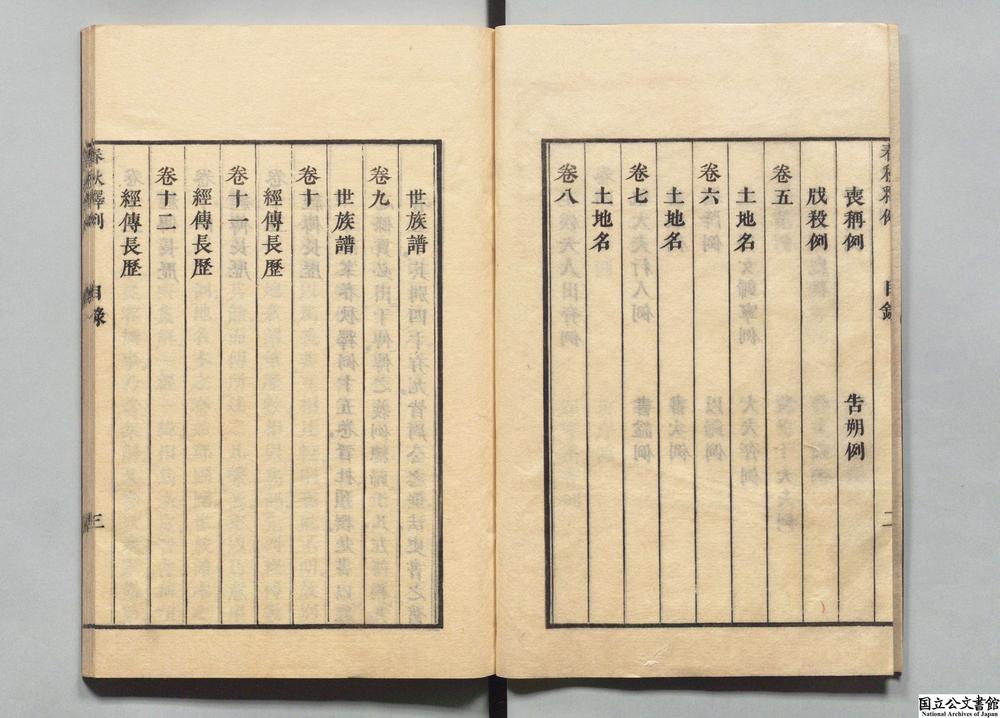 春秋釋例 目錄 二
喪稱例 告朔例
戕殺例
卷五
土地名
卷六
土地名
卷七
土地名
卷八
世族譜
卷九
世族譜
卷十
經傳長歷
卷十一
經傳長歷
卷十二
經傳長歷
春秋釋例 目錄 三
国立公文書館
National Archives of Japan